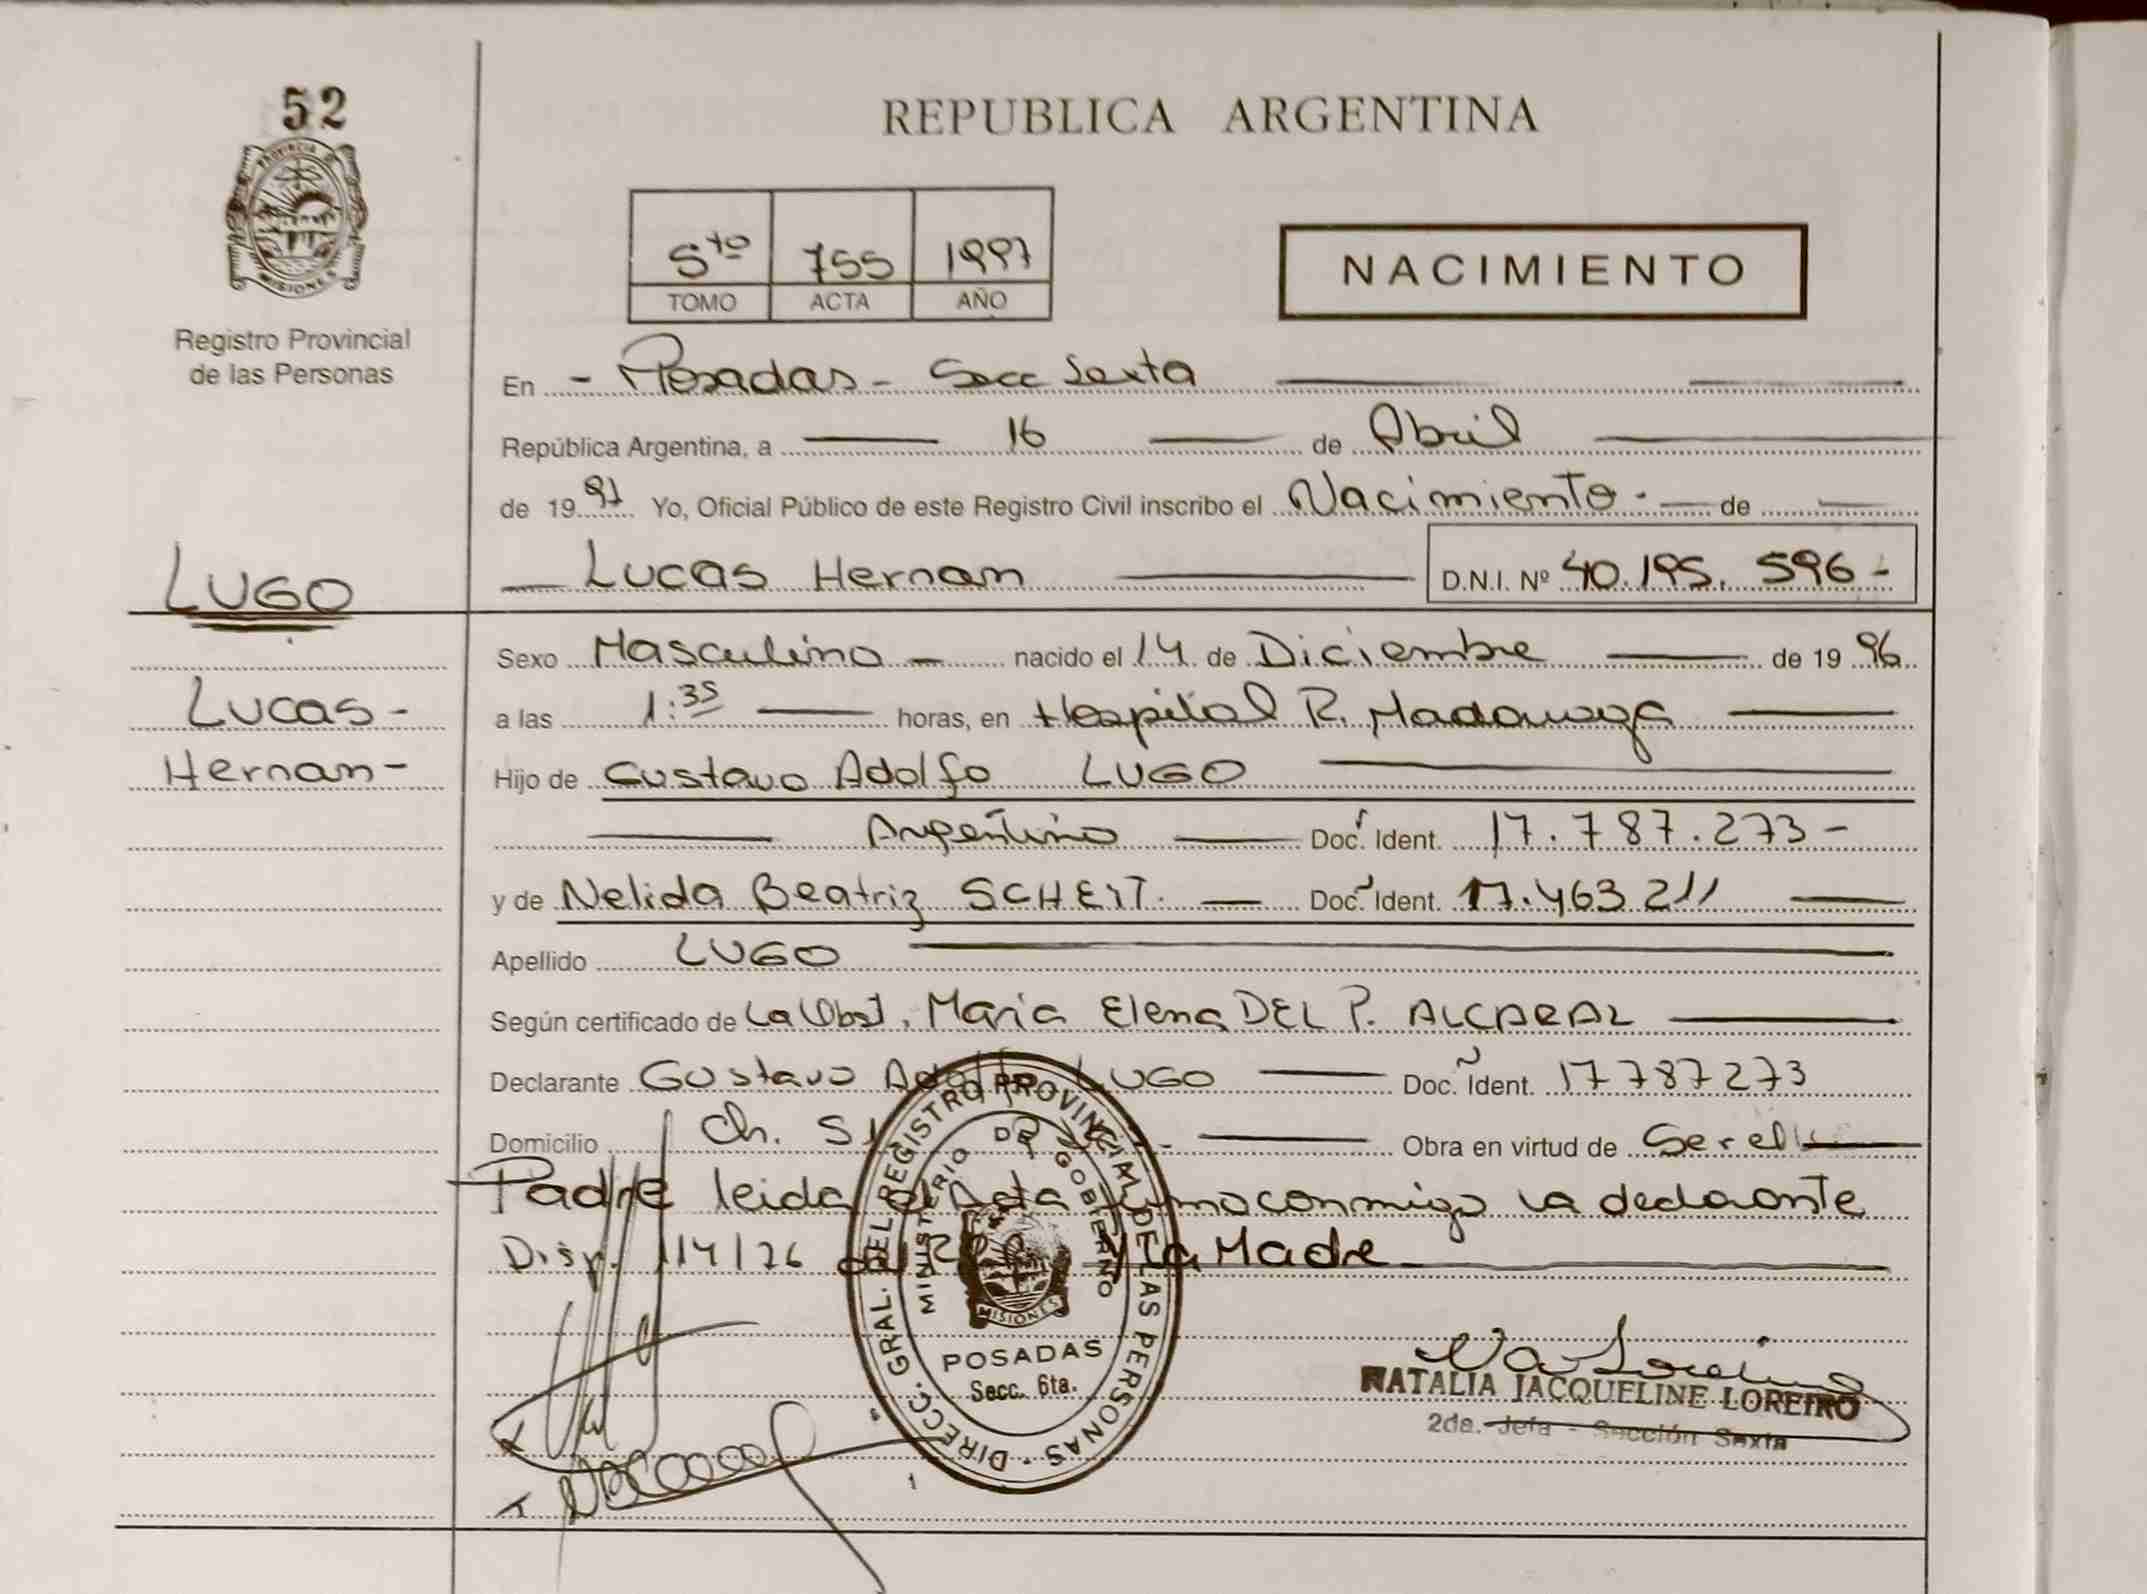 52
PROVINCIA DE
MISIONES
Registro Provincial
de las Personas
LUGO
Lucas-
Hernan-
REPUBLICA ARGENTINA
5to 755 1997
TOMO ACTA AÑO
NACIMIENTO
En - Posadas - Secc Sexta
República Argentina, a 16 de Abril
de 1997 Yo, Oficial Público de este Registro Civil inscribo el Nacimiento - de
Lucas Hernan D.N.I. Nº 40.195.596-
Sexo Masculino - nacido el 14 de Diciembre de 1996
a las 1:35 horas, en Hospital R. Madariaga
Hijo de Gustavo Adolfo LUGO
Argentino Doc. Ident. 17.787.273-
y de Nelida Beatriz SCHEIT. Doc. Ident. 17.463.211
Apellido LUGO
Según certificado de La Obst. Maria Elena DEL P. ALCARAZ
Declarante Gustavo Adolfo LUGO Doc. Ident. 17787273
Domicilio Ch. Obra en virtud de Ser el
Padre leida el Acta firma conmigo la declarante
Disp. 114/76 y la Madre
DIRECC. GRAL. DEL REGISTRO PROVINCIAL DE LAS PERSONAS
MINISTERIO DE GOBIERNO
MISIONES
POSADAS
Secc. 6ta.
NATALIA JACQUELINE LOREIRO
2da. Jefa - Sección Sexta